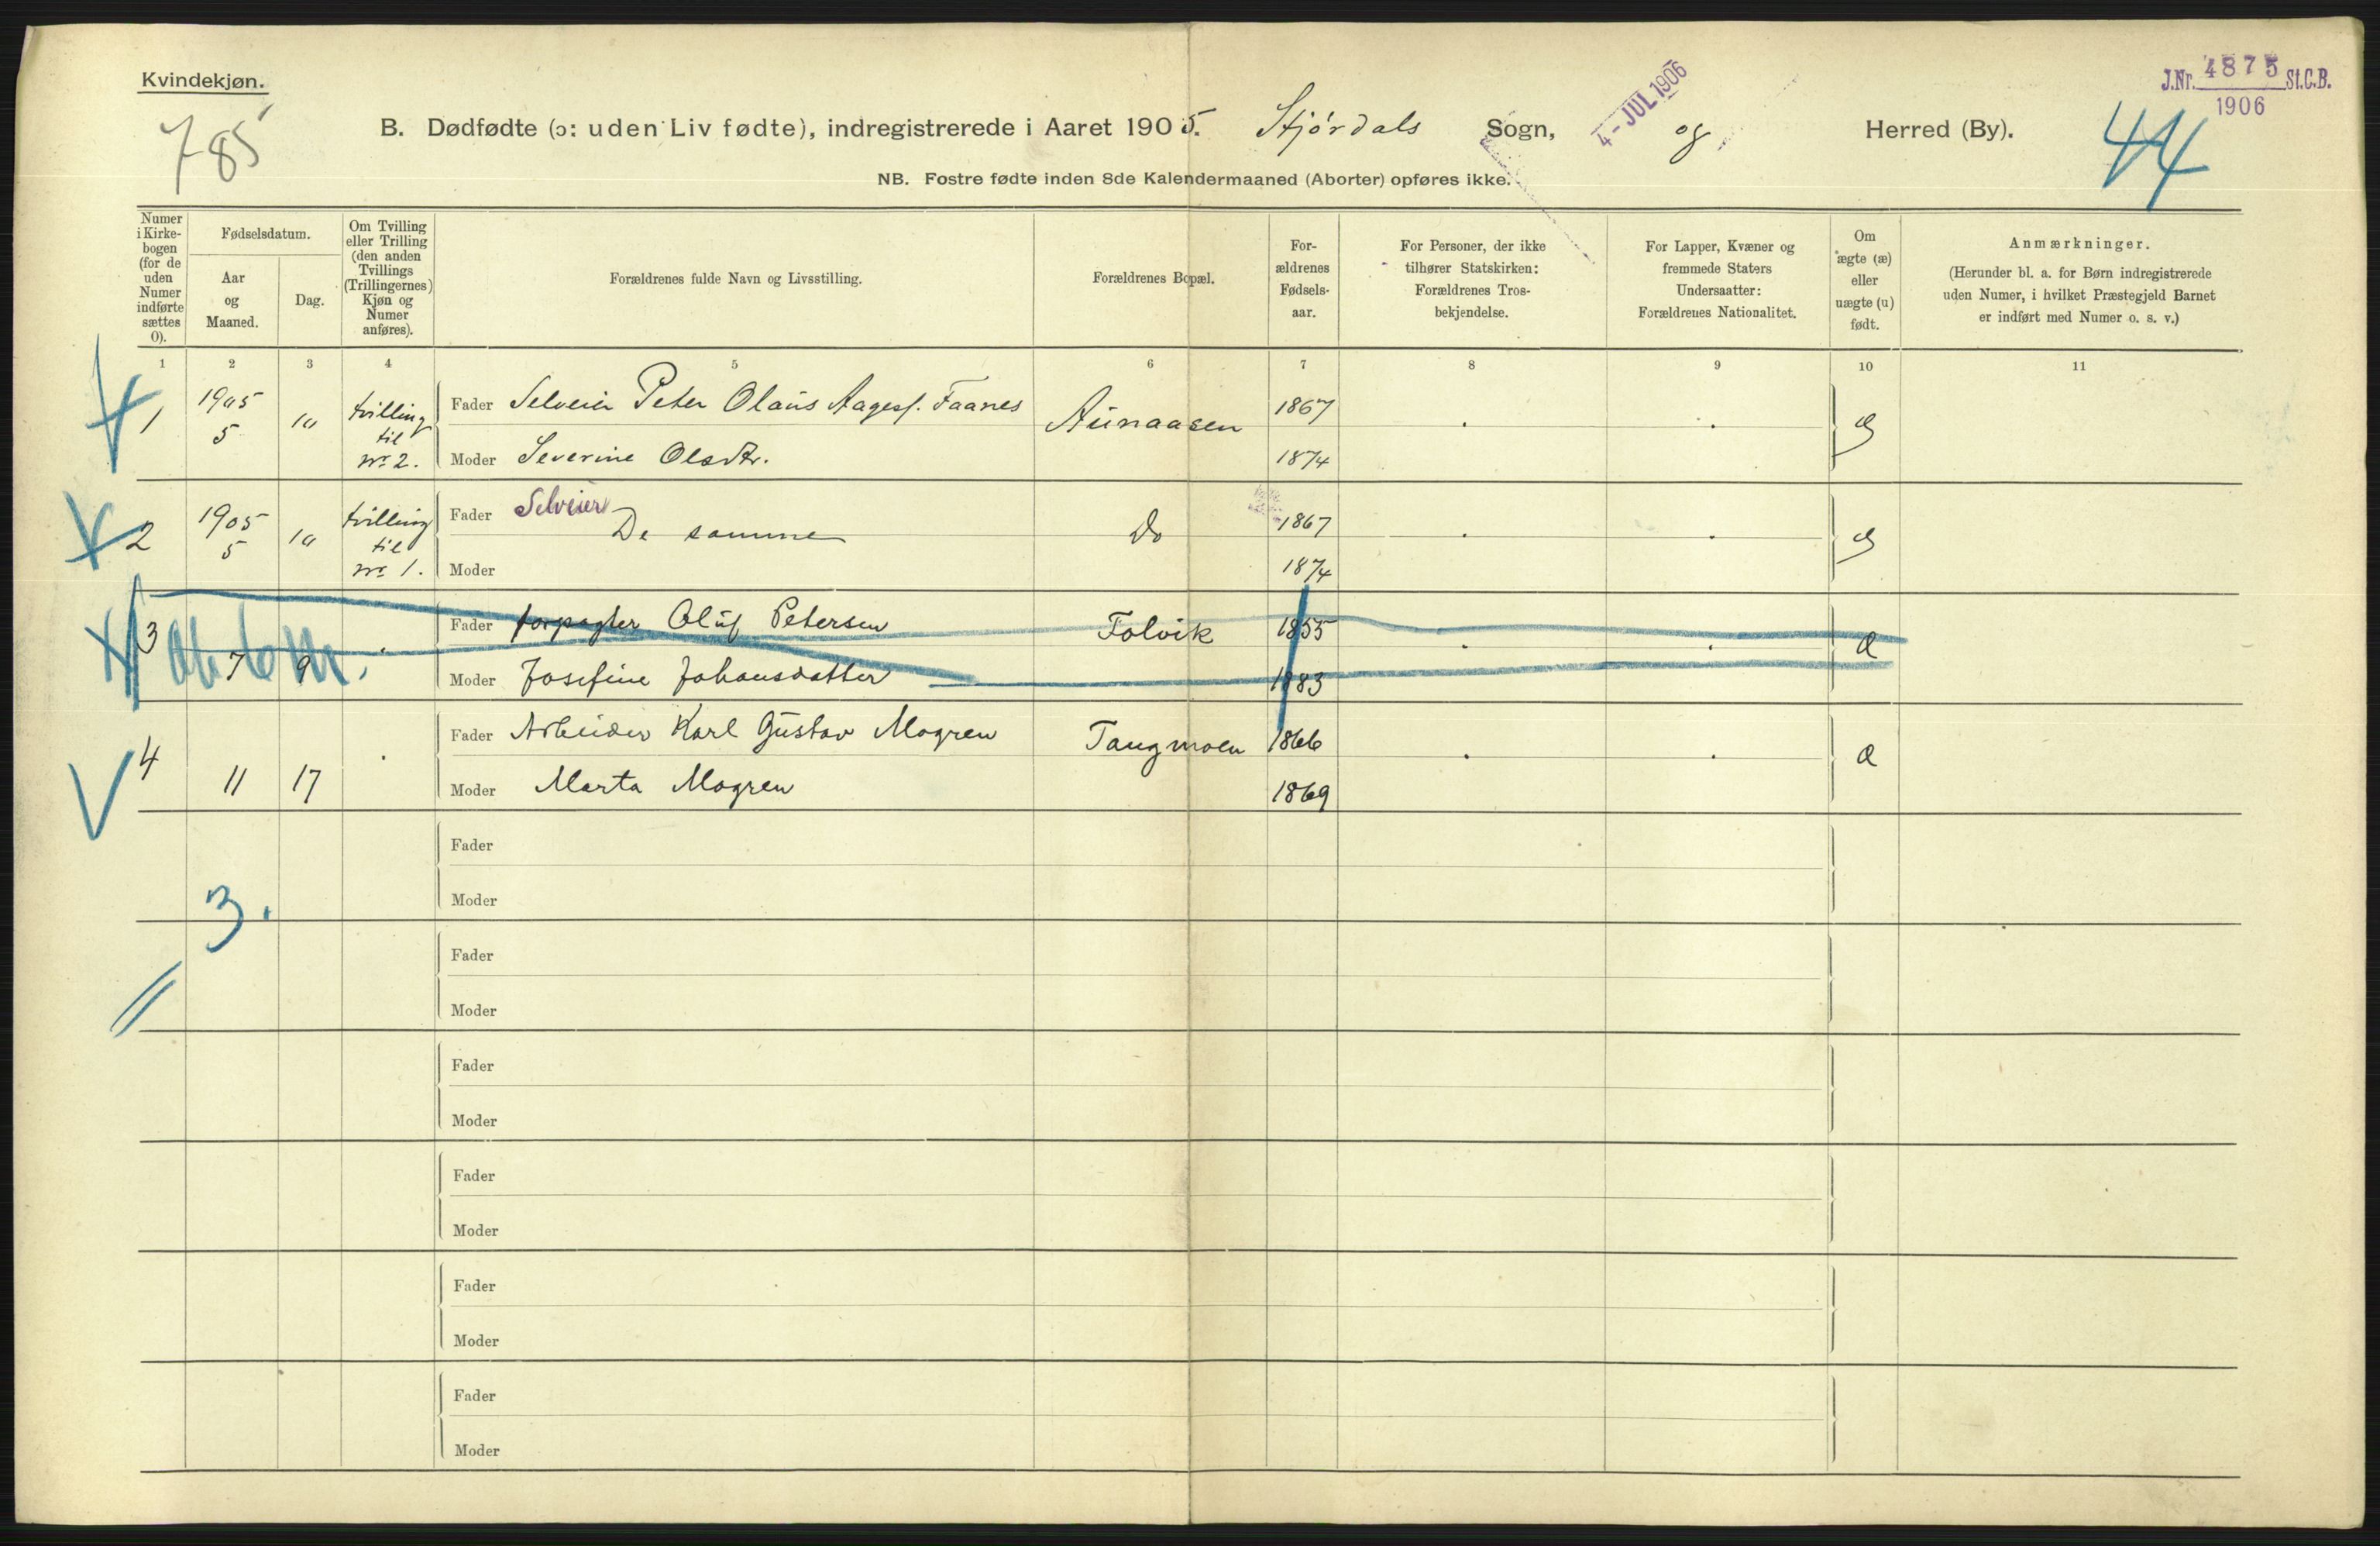 Kvindekjøn.
785
J.Nr. 4875 St.C.B.
1906
44
4-JUL 1906
B. Dødfødte (ɔ: uden Liv fødte), indregistrerede i Aaret 1905. Stjørdals Sogn, og Herred (By).
NB. Fostre fødte inden 8de Kalendermaaned (Aborter) opføres ikke.
Numer
i Kirke-
bogen
(for de
uden
Numer
indførte
sættes
0).
Fødselsdatum.
Aar
og
Maaned.
Dag.
Om Tvilling
eller Trilling
(den anden
Tvillings
(Trillingernes)
Kjøn og
Numer
anføres).
Forældrenes fulde Navn og Livsstilling.
Forældrenes Bopæl.
For-
ældrenes
Fødsels-
aar.
For Personer, der ikke
tilhører Statskirken:
Forældrenes Tros-
bekjendelse.
For Lapper, Kvæner og
fremmede Staters
Undersaatter:
Forældrenes Nationalitet.
Om
ægte (æ)
eller
uægte (u)
født.
Anmærkninger.
(Herunder bl. a. for Børn indregistrerede
uden Numer, i hvilket Præstegjeld Barnet
er indført med Numer o. s. v.)
1 2 3 4 5 6 7 8 9 10 11
1
1905
5
10
tvilling
til
nr 2.
Fader Selveier Peter Olaus Aagesf. Faanes
Moder Severine Olsdtr.
Aunaasen
1867
1874
æ
2
1905
5
10
tvilling
til
nr 1.
Fader Selveier
De samme
Moder
Do
1867
1874
æ
3
7
9
Fader forpagter Oluf Petersen
Moder Josefine Johansdatter
Folvik
1855
1883
æ
4
11
17
Fader Arbeider Karl Gustav Mogren
Moder Marta Mogren
Tangmoen
1866
1869
æ
Fader
Moder
3.
Fader
Moder
Fader
Moder
Fader
Moder
Fader
Moder
Fader
Moder